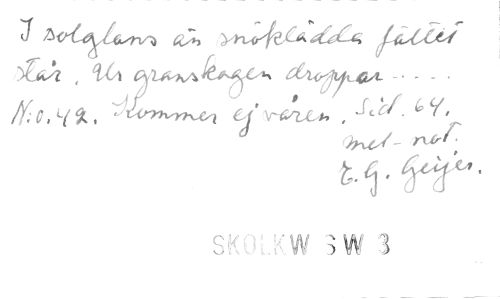 I solglans än snöklädda fältet
står. Ur granskogen droppar.....
N:o.42. Kommer ej våren. Sid. 64.
mel-not.
E.G. Geijer.
SKOLKW 6 W 3